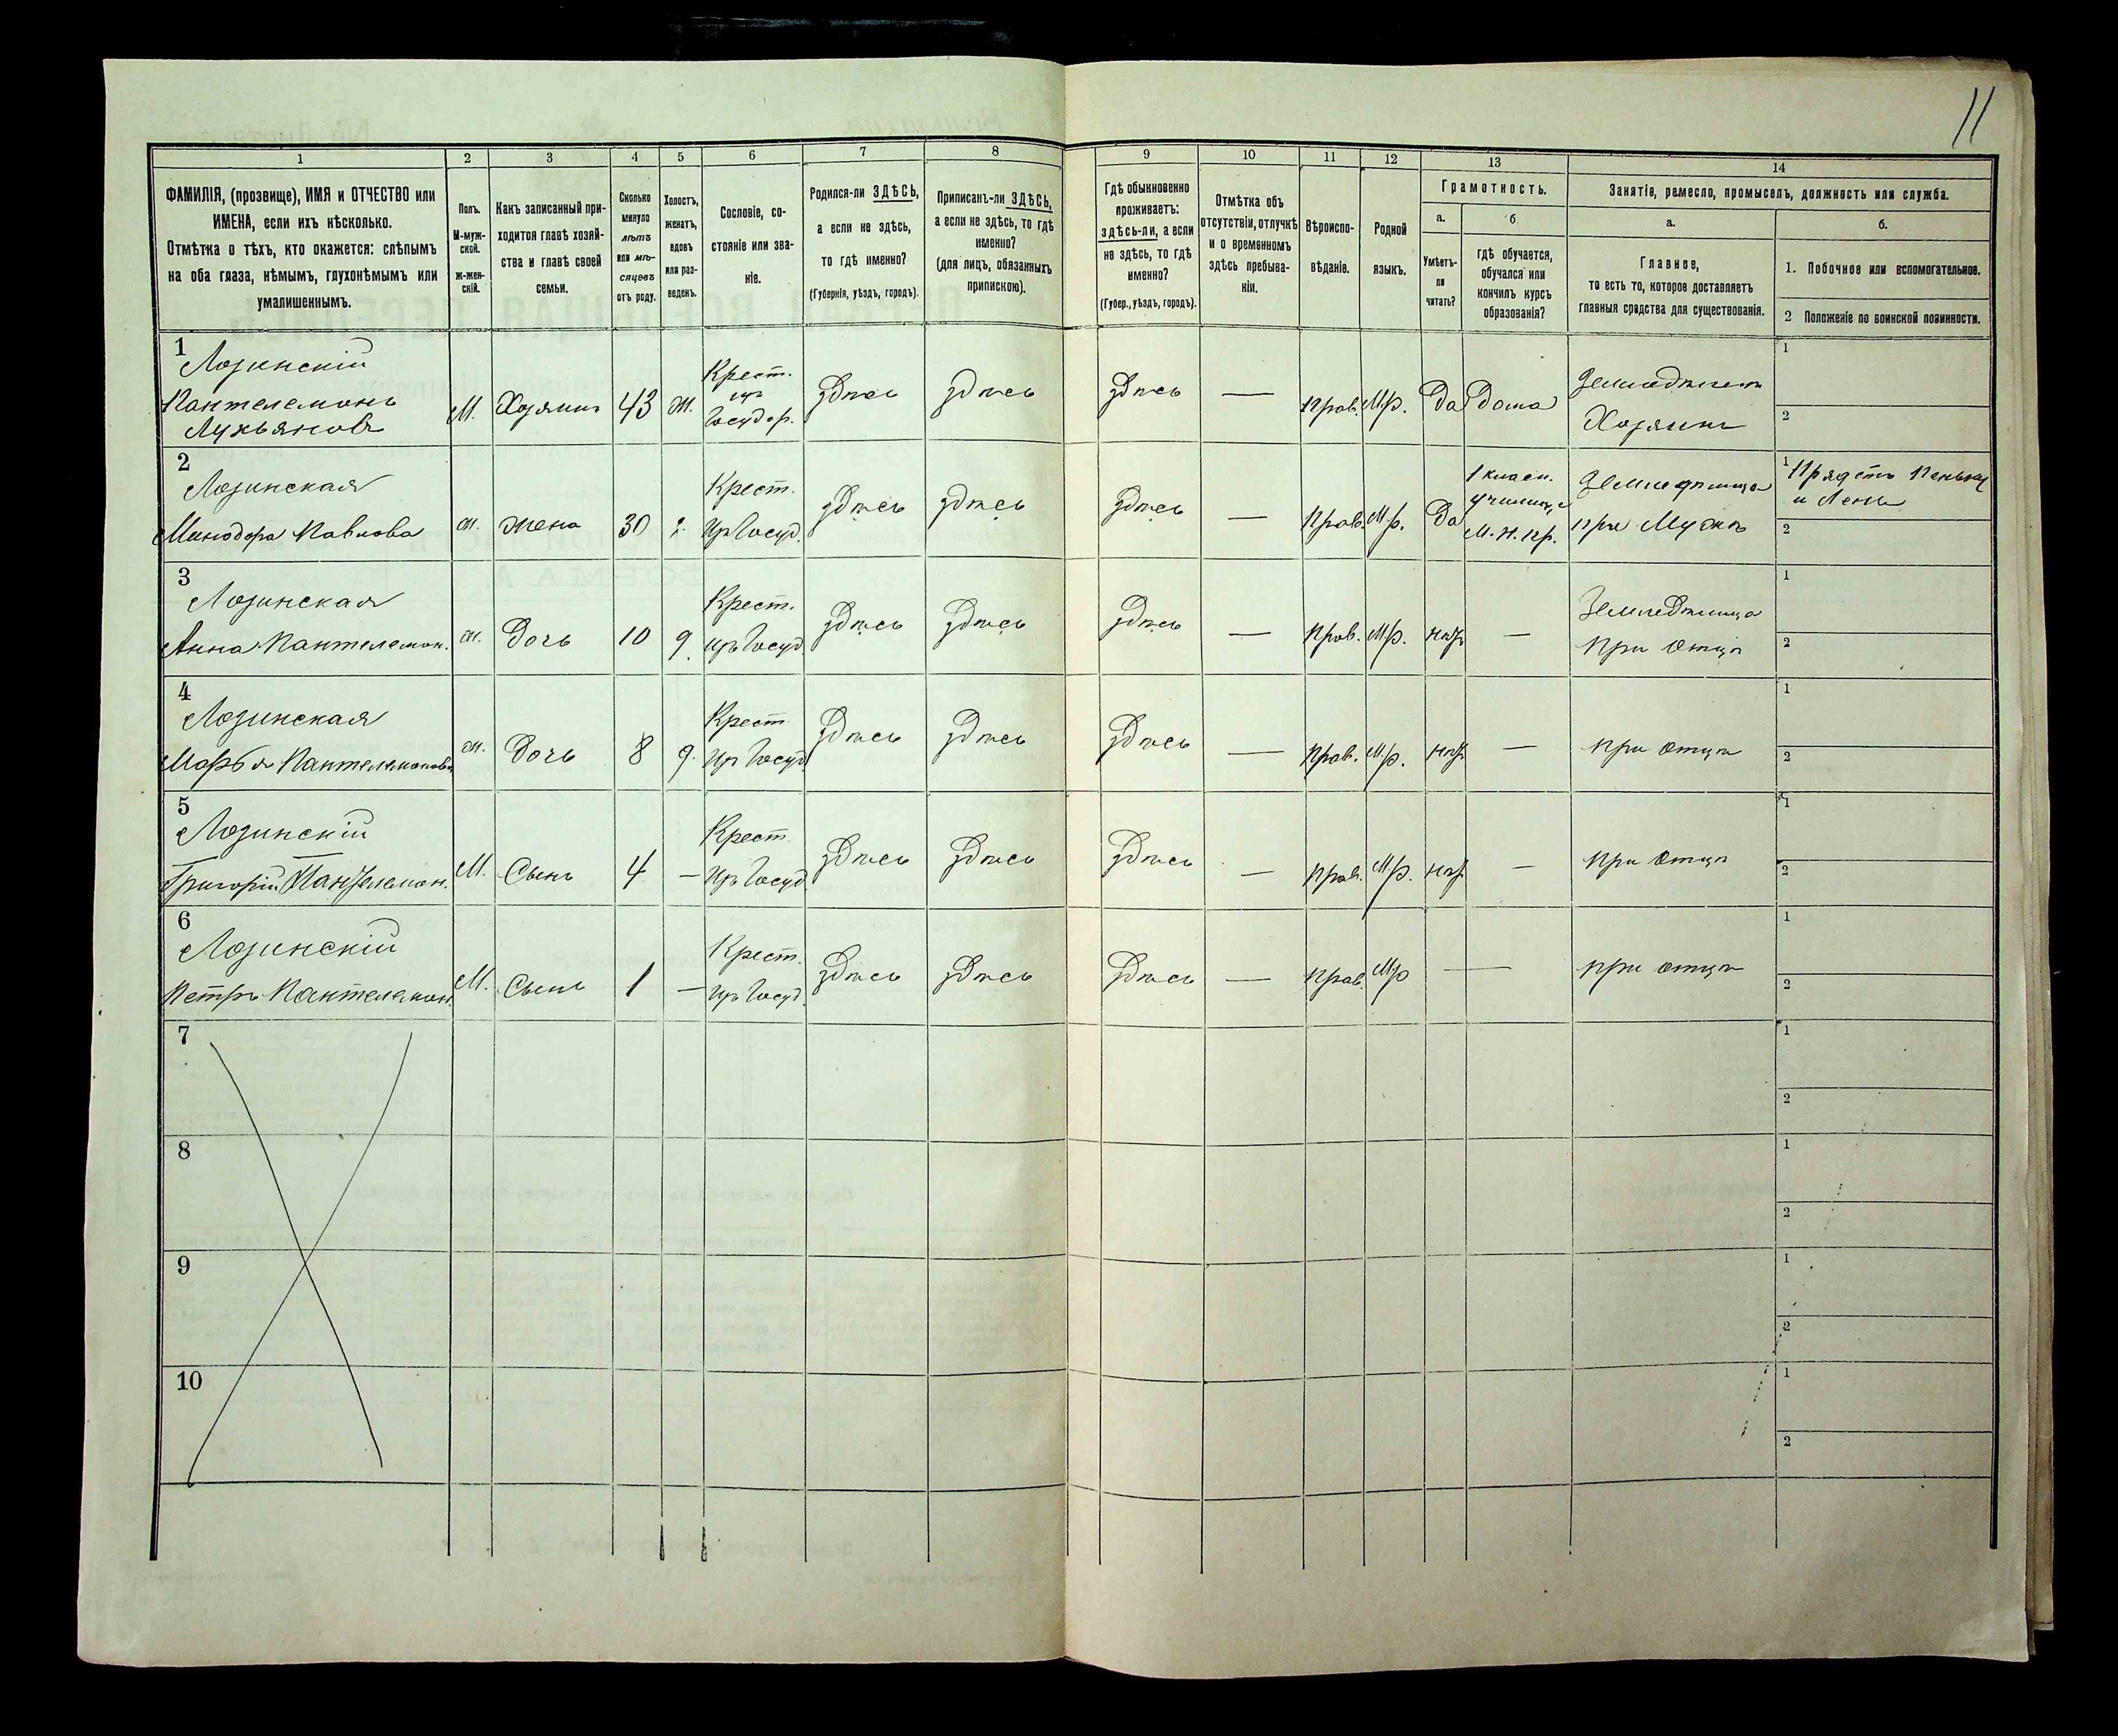 11
1 2 3 4 5 6 7 8 9 10 11 12 13 14
ФАМИЛІЯ, (прозвище), ИМЯ и ОТЧЕСТВО или
ИМЕНА, если ихъ нѣсколько.
Отмѣтка о тѣхъ, кто окажется: слѣпымъ
на оба глаза, нѣмымъ, глухонѣмымъ или
умалишеннымъ.
Полъ.
М-муж-
ской.
ж-жен-
скій.
Какъ записанный при-
ходится главѣ хозяй-
ства и главѣ своей
семьи.
Сколько
минуло
лѣтъ
или мѣ-
сяцевъ
отъ роду.
Холостъ,
женатъ,
вдовъ
или раз-
веденъ.
Сословіе, со-
стояніе или зва-
ніе.
Родился-ли ЗДѢСЬ,
а если не здѣсь,
то гдѣ именно?
(Губернія, уѣздъ, городъ).
Приписанъ-ли ЗДѢСЬ,
а если не здѣсь, то гдѣ
именно?
(для лицъ, обязанныхъ
припискою).
Гдѣ обыкновенно
проживаетъ:
здѣсь-ли, а если
не здѣсь, то гдѣ
именно?
(Губер., уѣздъ, городъ).
Отмѣтка объ
отсутствіи, отлучкѣ
и о временномъ
здѣсь пребыва-
ніи.
Вѣроиспо-
вѣданіе.
Родной
языкъ.
Грамотность.
а.
Умѣетъ-
ли
читать?
б.
гдѣ обучается,
обучался или
кончилъ курсъ
образованія?
Занятіе, ремесло, промыселъ, должность или служба.
а.
Главное,
то есть то, которое доставляетъ
главныя средства для существованія.
б.
1. Побочное или вспомогательное.
2 Положеніе по воинской повинности.
1
Лозинскій
Пантелемонъ
Лукьяновъ
М. Хозяинъ 43 ж. Крест.
изъ
Государ.
здѣсь здѣсь здѣсь — Прав. М.р. Да Дома
Земледѣлецъ
Хозяинъ
1
2
2
Лозинская
Минодора Павлова
ж. жена 30 з. Крест.
изъ Госуд.
здѣсь здѣсь здѣсь — Прав. М.р. Да
1 класн.
училище
М.Н.Пр.
Земледѣлица
при Мужѣ
1 Прядетъ Пеньку
и Ленъ
2
3
Лозинская
Анна Пантелемон.
ж. Дочь 10 д. Крест.
изъ Госуд.
здѣсь здѣсь здѣсь — Прав. М.р. нѣтъ —
Земледѣлица
при Отцѣ
1
2
4
Лозинская
Марья Пантелемонова
ж. Дочь 8 д. Крест.
изъ Госуд.
здѣсь здѣсь здѣсь — Прав. М.р. нѣтъ — при Отцѣ
1
2
5
Лозинскій
Григорій Пантелемон.
М. Сынъ 4 — Крест.
изъ Госуд.
здѣсь здѣсь здѣсь — Прав. М.р. нѣтъ — при Отцѣ
1
2
6
Лозинскій
Петръ Пантелемон.
М. Сынъ 1 — Крест.
изъ Госуд.
здѣсь здѣсь здѣсь — Прав. М.р — при отцѣ
1
2
7
1
2
8
1
2
9
1
2
10
1
2